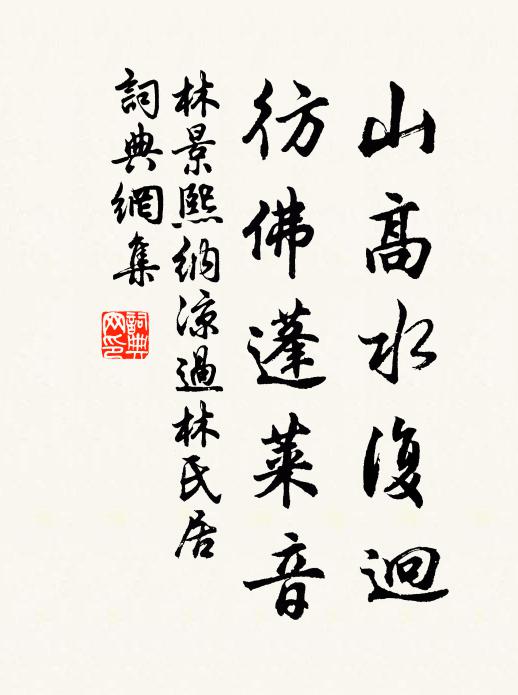 山高水復迴
彷佛蓬萊音
林景熙納涼過林氏居
詞典網集
詞典网印